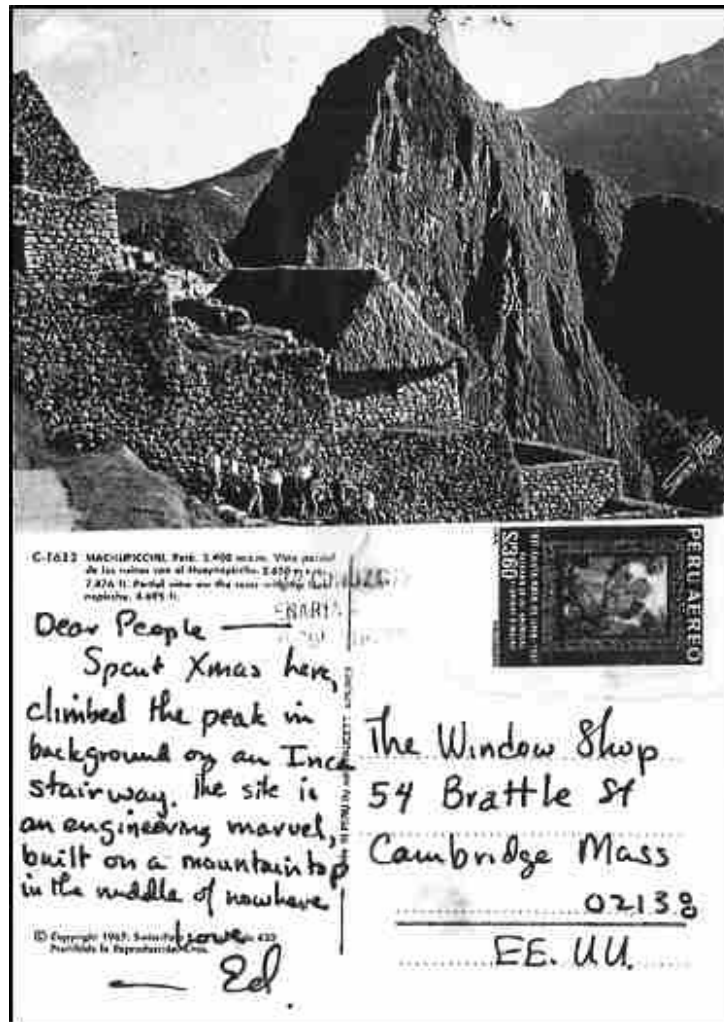 C-1633 MACHUPICCHU, Perú. 2.400 m.s.n.m. Vista parcial
de las ruinas con el Huaynapicchu. 2.650 m.s.n.m.
7.876 ft. Partial view
PERU AEREO
S/.3.60
Dear People —
Spent Xmas here,
climbed the peak in
background on an Inca
stairway. The site is
an engineering marvel,
built on a mountain top
in the middle of nowhere
Love
— Ed.
© Copyright 1967:
Prohibida la Reproducción
The Window Shop
54 Brattle St
Cambridge Mass
02138
EE. UU.